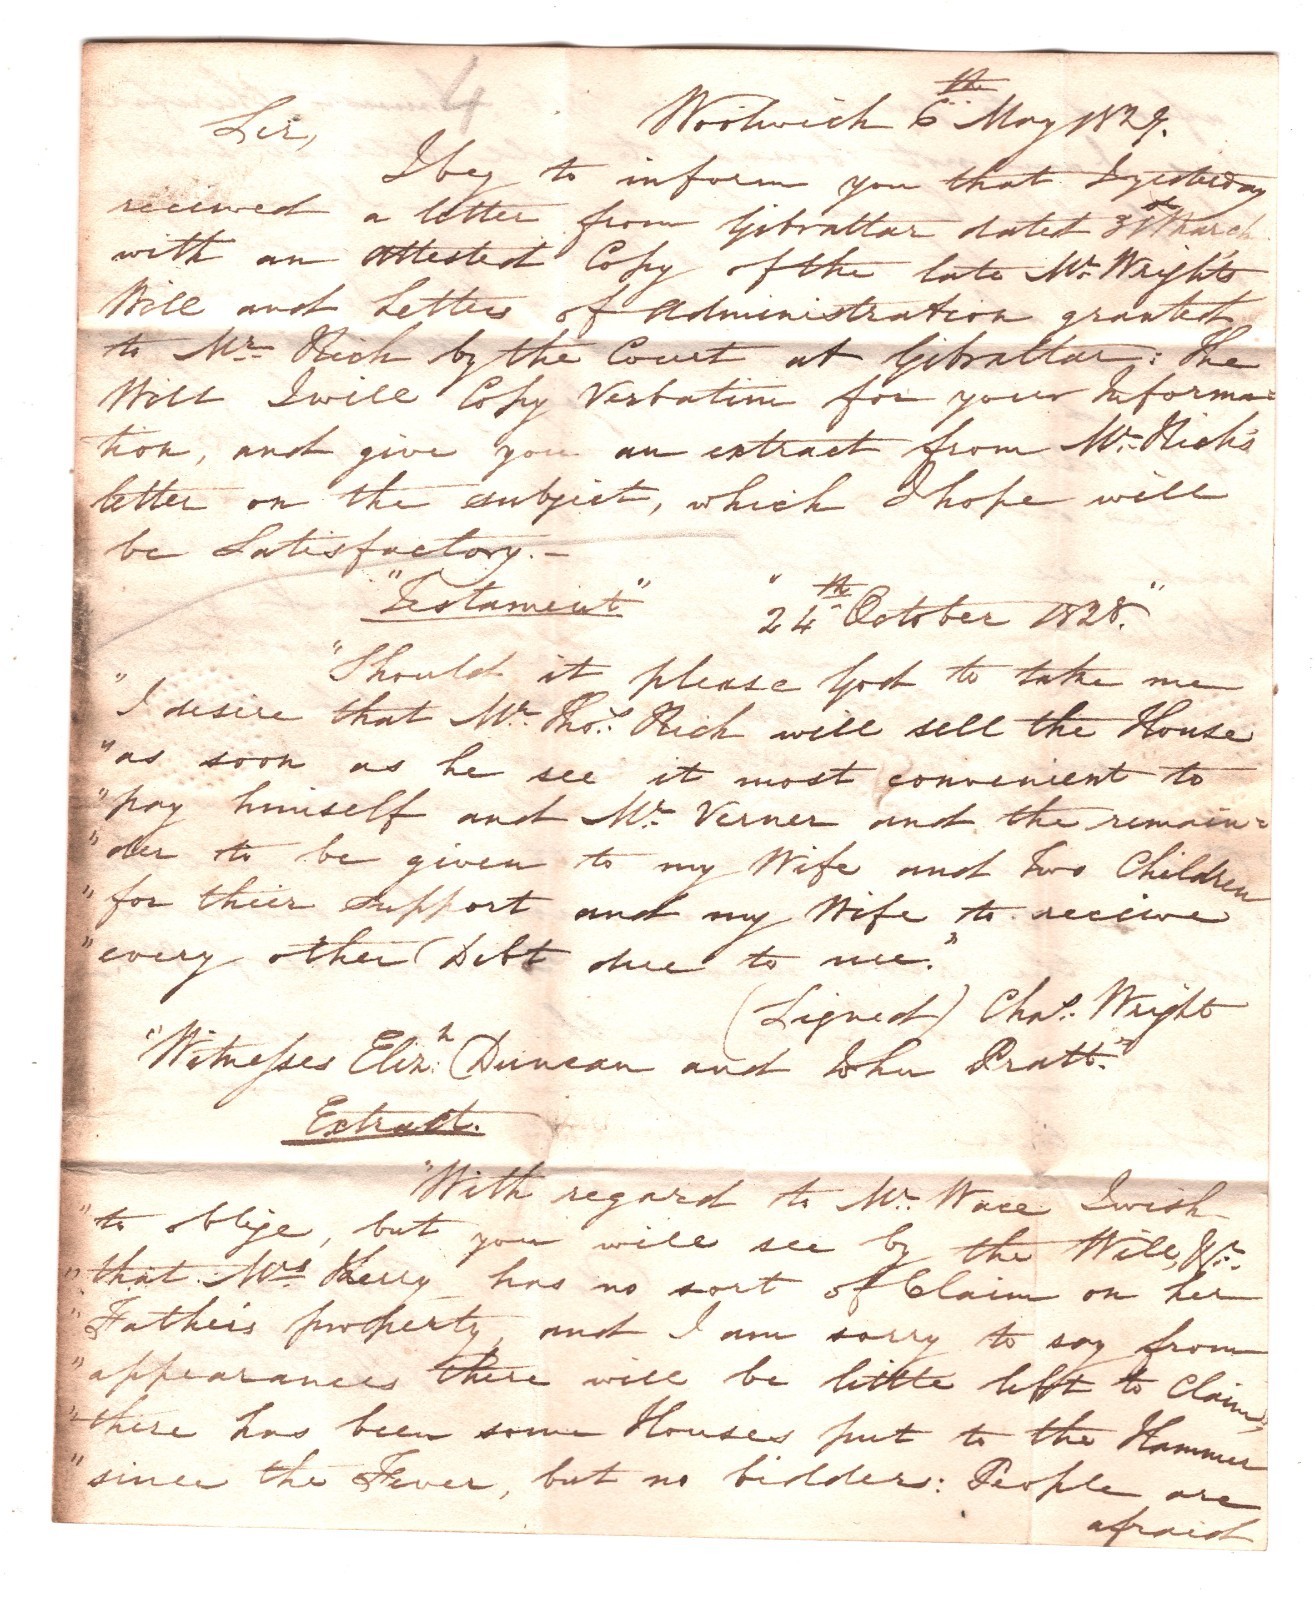 4
Woolwich 6th May 1829.
Sir,
I beg to inform you that I yesterday
received a letter from Gibraltar dated 31st March
with an attested Copy of the late Mr. Wright's
Will and Letters of Administration granted
to Mr. Rich by the Court at Gibraltar: The
Will I will Copy Verbatim for your Informa=
tion, and give you an extract from Mr. Rich's
letter on the subject, which I hope will
be Satisfactory.—
"Testament" "24th October 1828."
"Should it please God to take me
"I desire that Mr. Thos. Rich will sell the House
"as soon as he see it most convenient to
"pay himself and Mr. Verner and the remain=
"der to be given to my Wife and Two Children
"for thier support and my Wife to receive
"every other Debt due to me."
(Signed) Chas. Wright
"Witnesses Elizh. Duncan and John Pratt."
Extract.
"With regard to Mr. Wace I wish
"to oblige, but you will see by the Will,
"that Mrs. has no sort of Claim on her
"Father's property, and I am sorry to say from
"appearances there will be little left to Claim,
"there has been some Houses put to the Hammer
"since the Fever, but no bidders: People are
afraid